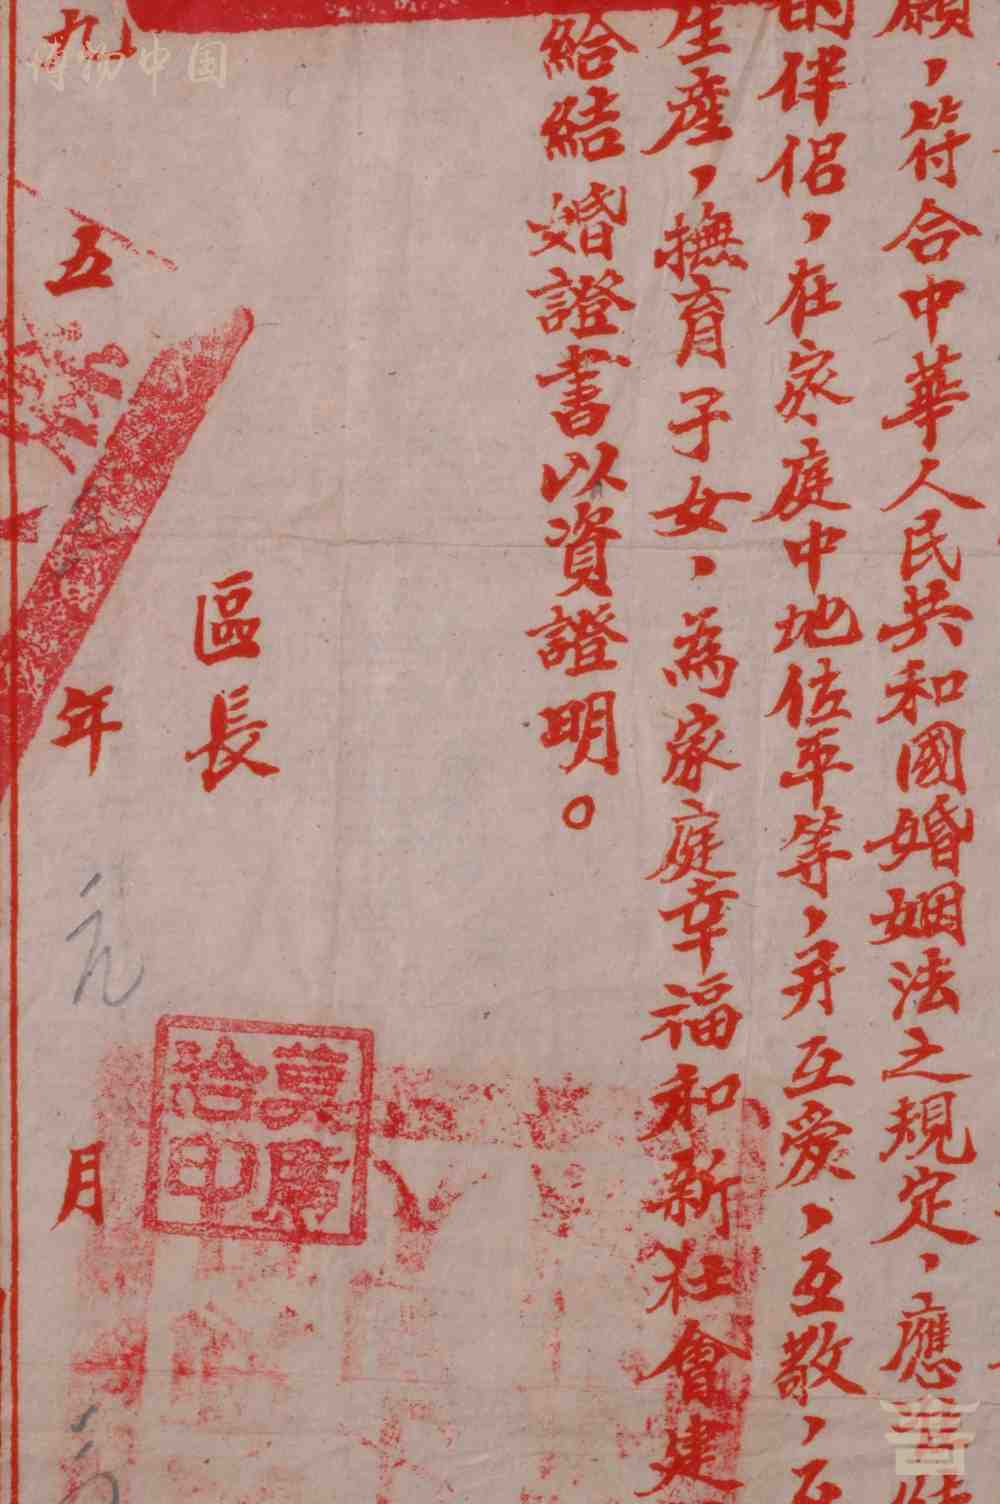 願，符合中華人民共和國婚姻法之規定，應
的伴侶，在家庭中地位平等，并互愛，互敬，互
生產，撫育子女、為家庭幸福和新社會建
給結婚證書以資證明。
區長
九五年元月
莫廣治印
博物中国